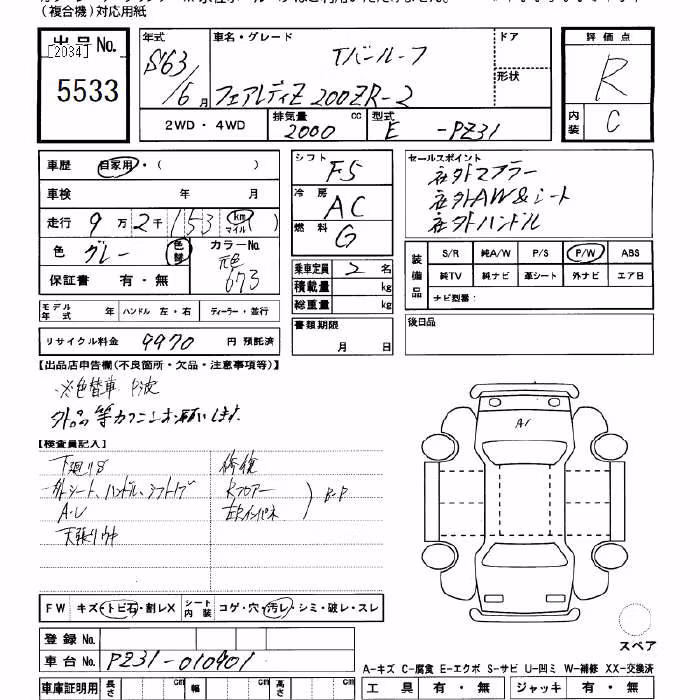 (複合機)対応用紙
出品No. 年式 車名・グレード ドア 評価点
[2034] S63 Tバールーフ R
5533 /6月 フェアレディZ 200ZR-2 形状
2WD・4WD 排気量 2000 cc 型式 E -PZ31 内装 C
車歴 自家用・( ) シフト F5 セールスポイント
車検 年 月 冷房 AC 社外マフラー
走行 9万2千153 km マイル 燃料 G 社外AW&シート
社外ハンドル
色 グレー 色替 カラーNo. 元色 673
保証書 有・無 乗車定員 2 名
積載量 kg
総重量 kg
装備品 S/R 純A/W P/S P/W ABS
純TV 純ナビ 革シート 外ナビ エアB
ナビ型番:
モデル年式 年 ハンドル 左・右 ディーラー・並行
書類期限 月 日
後日品
リサイクル料金 9970 円 預託済
【出品店申告欄(不良箇所・欠品・注意事項等)】
※色替車
外品等カクニンお願いします.
【検査員記入】
下廻りS 修復
外シート、ハンドル、シフトノブ Rフロアー
A・U B・P
A1
FW キズ・トビ石・割レX シート内装 コゲ・穴・汚レ・シミ・破レ・スレ
登録No.
車台No. PZ31-010401
スペア
A-キズ C-腐食 E-エクボ S-サビ U-凹ミ W-補修 XX-交換済
車庫証明用 長さ cm 幅 cm 高さ cm 工具 有・無 ジャッキ 有・無